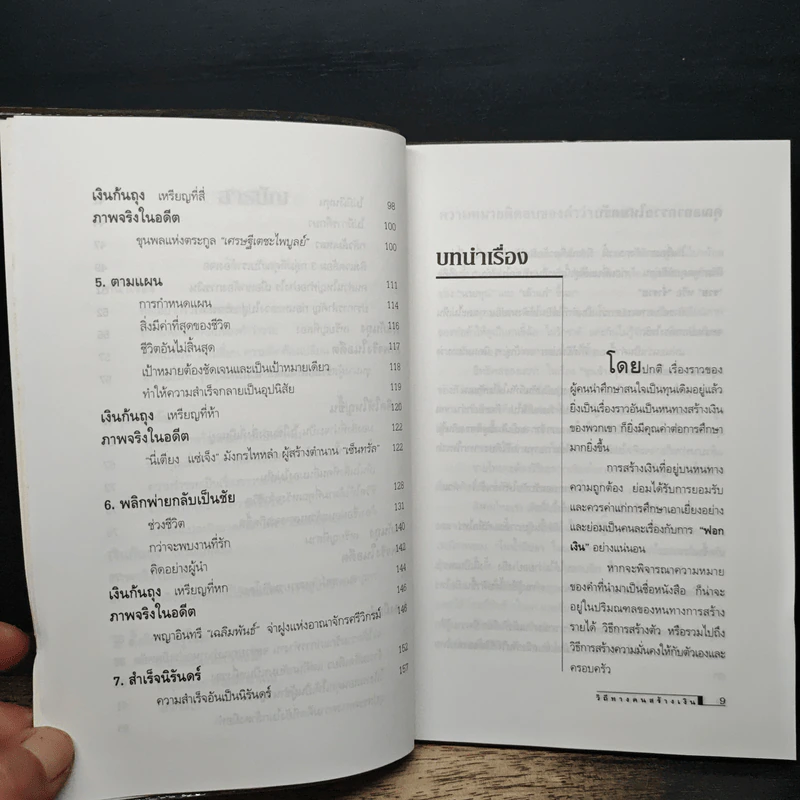 เงินก้นถุง เหรียญที่สี่ 98
ภาพจริงในอดีต 100
ขุนพลแห่งตระกูล "เศรษฐีเตชะไพบูลย์" 100
5. ตามแผน 111
การกำหนดแผน 114
สิ่งมีค่าที่สุดของชีวิต 116
ชีวิตอันไม่สิ้นสุด 117
เป้าหมายต้องชัดเจนและเป็นเป้าหมายเดียว 118
ทำให้ความสำเร็จกลายเป็นอุปนิสัย 119
เงินก้นถุง เหรียญที่ห้า 120
ภาพจริงในอดีต 122
"นี่เตียง แซ่เจ็ง" มังกรไหหลำ ผู้สร้างตำนาน "เซ็นทรัล" 122
6. พลิกพ่ายกลับเป็นชัย 128
ช่วงชีวิต 131
กว่าจะพบงานที่รัก 140
คิดอย่างผู้นำ 142
เงินก้นถุง เหรียญที่หก 145
ภาพจริงในอดีต 146
พญาอินทรี "เฉลิมพันธ์" จ่าฝูงแห่งอาณาจักรศรีวิกรม์ 146
7. สำเร็จนิรันดร์ 152
ความสำเร็จอันเป็นนิรันดร์ 157
บทนำเรื่อง
โดยปกติ เรื่องราวของ
ผู้คนน่าศึกษาสนใจเป็นทุนเดิมอยู่แล้ว
ยิ่งเป็นเรื่องราวอันเป็นหนทางสร้างเงิน
ของพวกเขา ก็ยิ่งมีคุณค่าต่อการศึกษา
มากยิ่งขึ้น
การสร้างเงินที่อยู่บนหนทาง
ความถูกต้อง ย่อมได้รับการยอมรับ
และควรค่าแก่การศึกษาเอาเยี่ยงอย่าง
และย่อมเป็นคนละเรื่องกับการ "ฟอก
เงิน" อย่างแน่นอน
หากจะพิจารณาความหมาย
ของคำที่นำมาเป็นชื่อหนังสือ ก็น่าจะ
อยู่ในปริมณฑลของหนทางการสร้าง
รายได้ วิธีการสร้างตัว หรือรวมไปถึง
วิธีการสร้างความมั่นคงให้กับตัวเองและ
ครอบครัว
วิถีทางคนสร้างเงิน 9